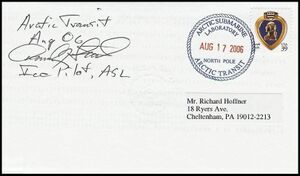 Arctic Transit
Aug 06
Ice Pilot, ASL
ARCTIC SUBMARINE
LABORATORY
AUG 17 2006
NORTH POLE
ARCTIC TRANSIT
39
Mr. Richard Hoffner
18 Ryers Ave.
Cheltenham, PA 19012-2213